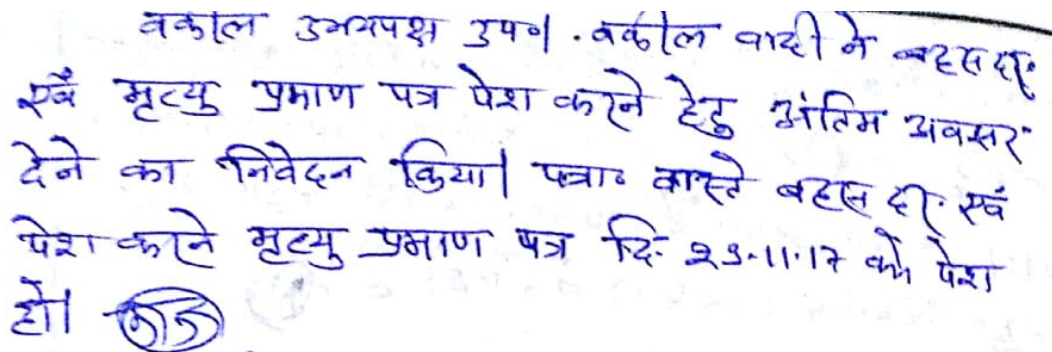 वकील उभयपक्ष उप०। वकील वादी ने बहस दर.
एवं मृत्यु प्रमाण पत्र पेश करने हेतु अंतिम अवसर
देने का निवेदन किया। पत्रा० वास्ते बहस दर. एवं
पेश करने मृत्यु प्रमाण पत्र दि. 23.11.17 को पेश
हो।